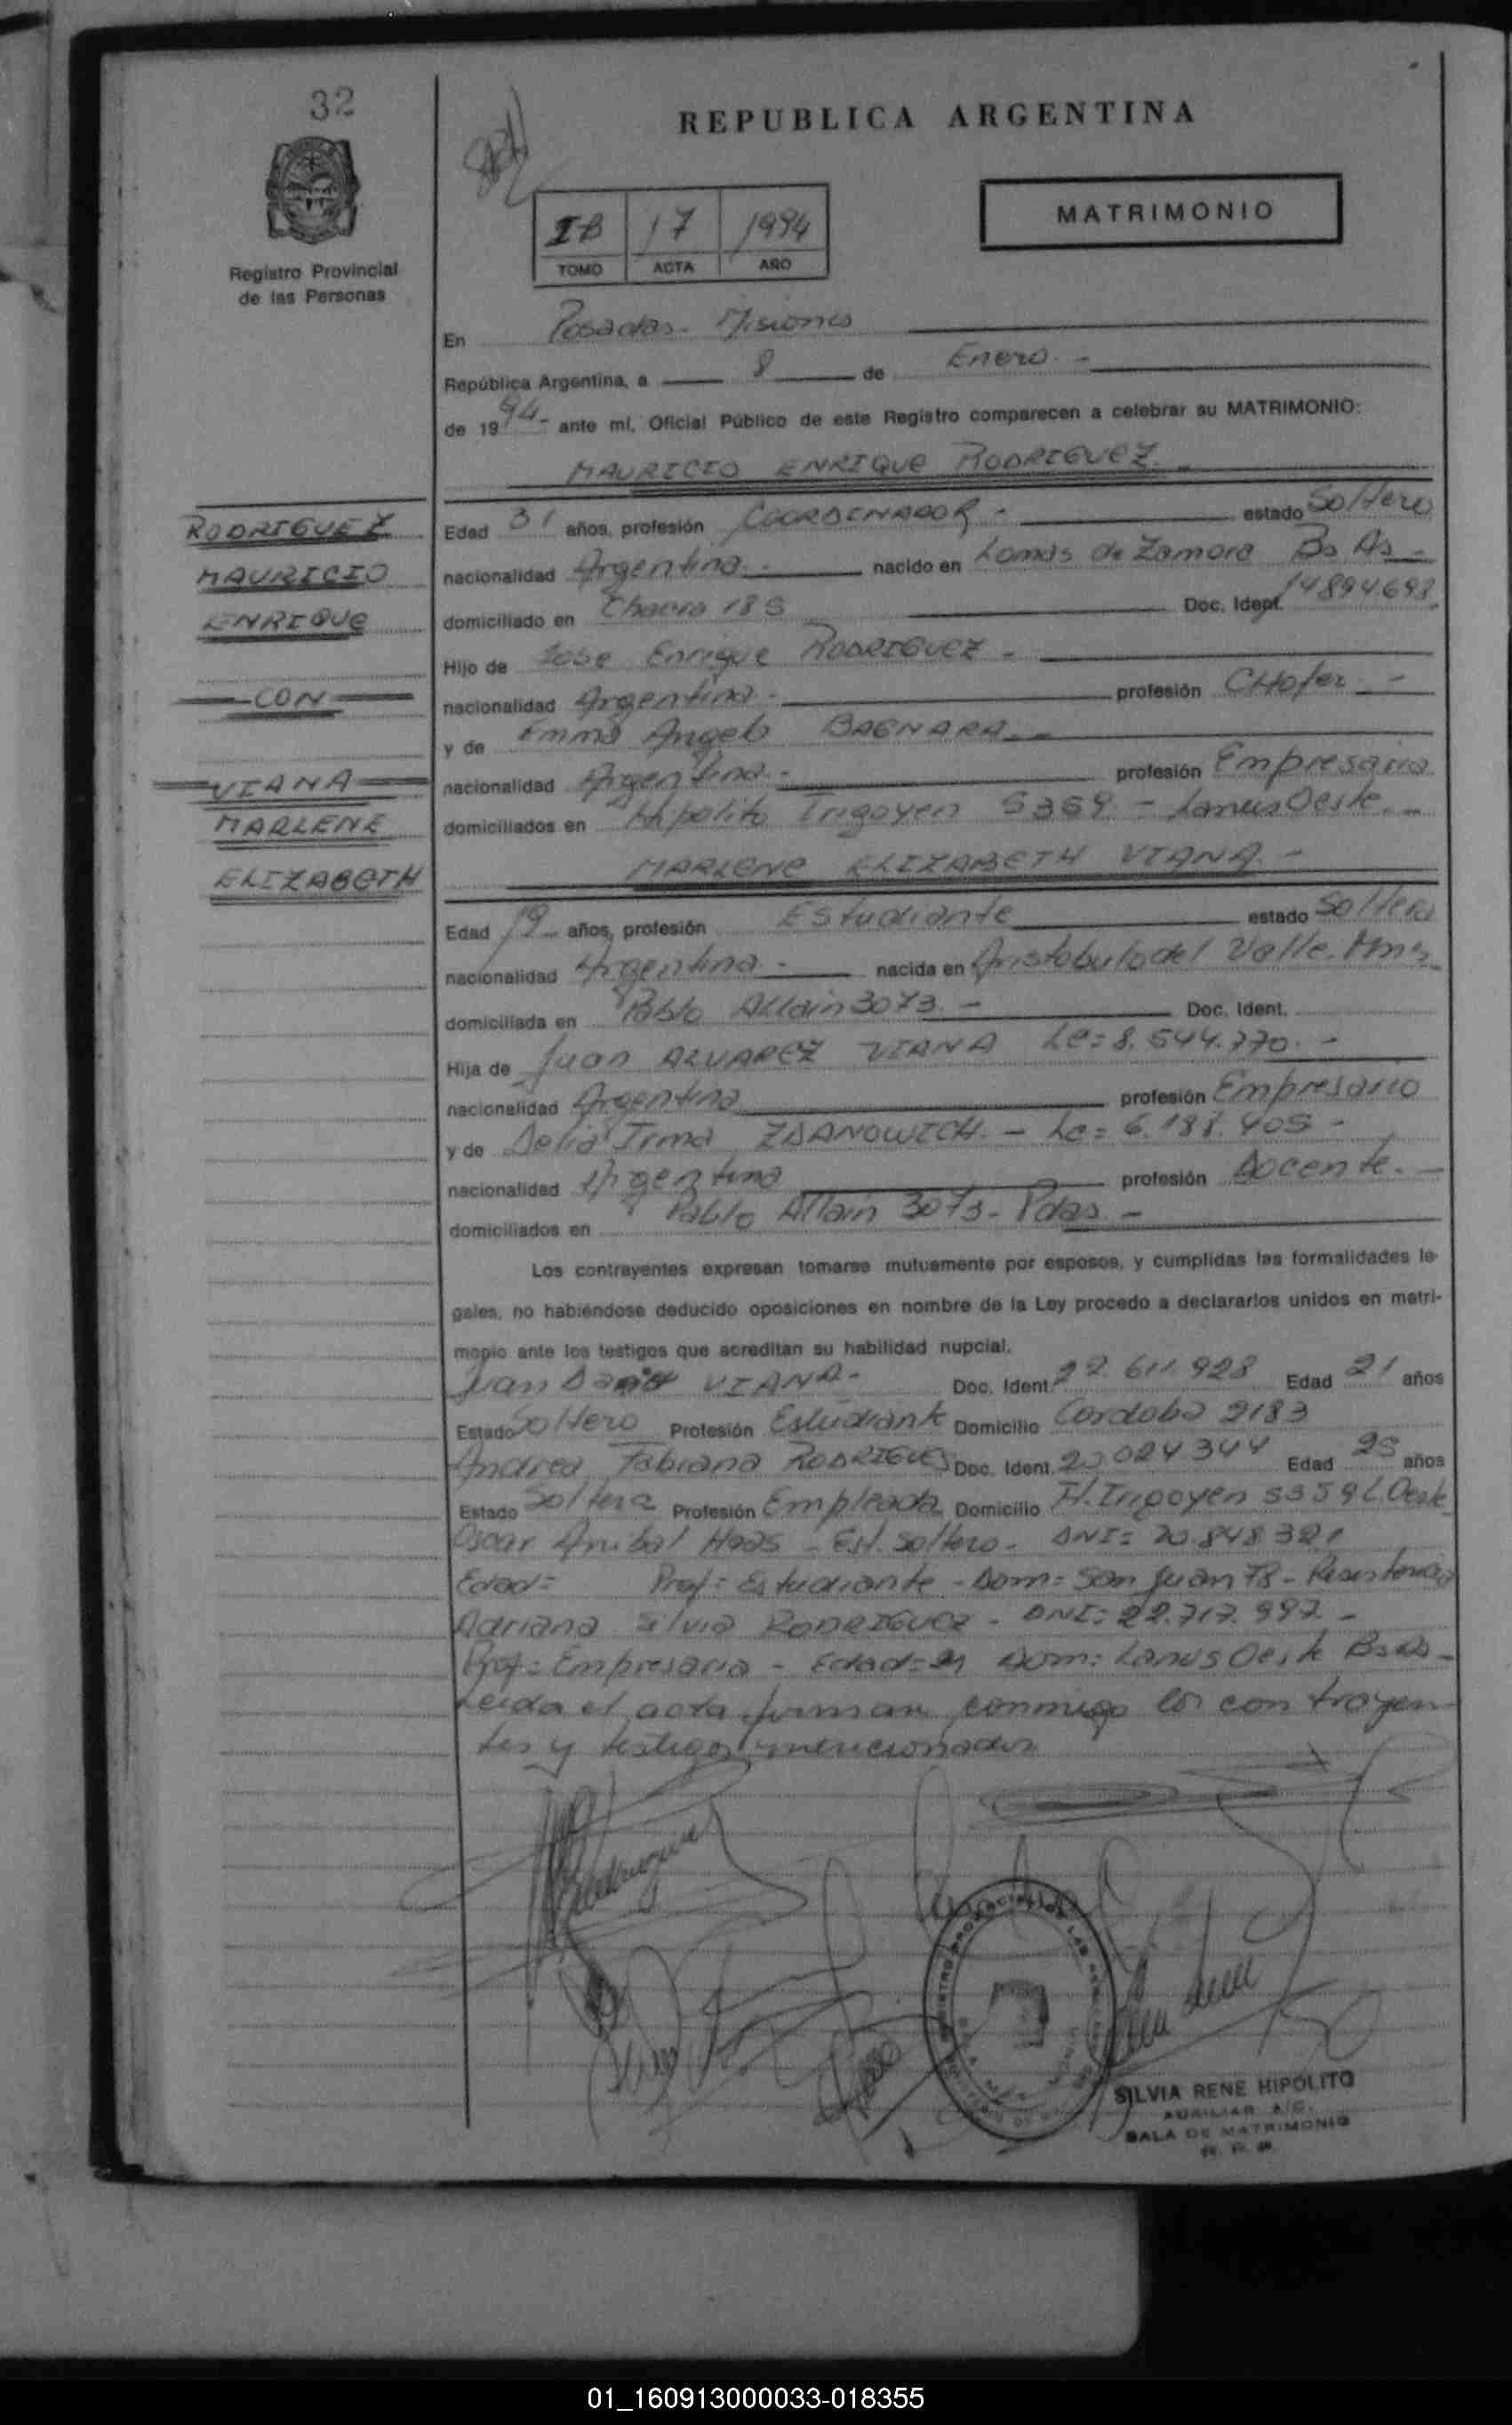 32
REPUBLICA ARGENTINA
MATRIMONIO
IB 17 1994
TOMO ACTA AÑO
Registro Provincial
de las Personas
En Posadas - Misiones
República Argentina, a 8 de Enero -
de 1994 - ante mí, Oficial Público de este Registro comparecen a celebrar su MATRIMONIO:
MAURICIO ENRIQUE RODRIGUEZ -
RODRIGUEZ
MAURICIO
ENRIQUE
CON
VIANA
MARLENE
ELIZABETH
Edad 31 años, profesión COORDINADOR - estado Soltero
nacionalidad Argentina - nacido en Lomas de Zamora Bs As -
domiciliado en Chacra 185 Doc. Ident. 14894.693
Hijo de Jose Enrique RODRIGUEZ -
nacionalidad Argentina - profesión CHofer -
y de Emma Angela BAGNARA -
nacionalidad Argentina - profesión Empresaria
domiciliados en Hipolito Irigoyen 5369 - Lanus Oeste -
MARLENE ELIZABETH VIANA -
Edad 19 años, profesión Estudiante estado Soltera
nacionalidad Argentina - nacida en Aristobulo del Valle. Mns
domiciliada en Pablo Allain 3073 - Doc. Ident.
Hija de Juan ALVAREZ VIANA Le= 8.544.770 -
nacionalidad Argentina profesión Empresario
y de Delia Irma ZDANOWICH - Lc= 6.188.405 -
nacionalidad Argentina profesión Docente -
domiciliados en Pablo Allain 3073 - Pdas -
Los contrayentes expresan tomarse mutuamente por esposos, y cumplidas las formalidades le-
gales, no habiéndose deducido oposiciones en nombre de la Ley procedo a declararlos unidos en matri-
monio ante los testigos que acreditan su habilidad nupcial.
Juan VIANA - Doc. Ident. 22.611.928 Edad 21 años
Estado Soltero Profesión Estudiante Domicilio Cordoba 2183
Andrea Fabiana RODRIGUEZ Doc. Ident. 20.024.344 Edad 25 años
Estado Soltera Profesión Empleada Domicilio H. Irigoyen 5359 L. Oeste
Oscar Anibal Haas - Est. Soltero - DNI= 20.848.321
Edad= Prof= Estudiante - Dom= San Juan 78 - Resistencia
Adriana Silvia RODRIGUEZ - DNI: 22.717.997 -
Prof= Empresaria - Edad= 21 Dom: Lanus Oeste Bs As -
Leida el acta firman conmigo los contrayen
tes y testigos mencionados
SILVIA RENE HIPOLITO
AUXILIAR A/C.
SALA DE MATRIMONIO
R. P. P.
01_160913000033-018355